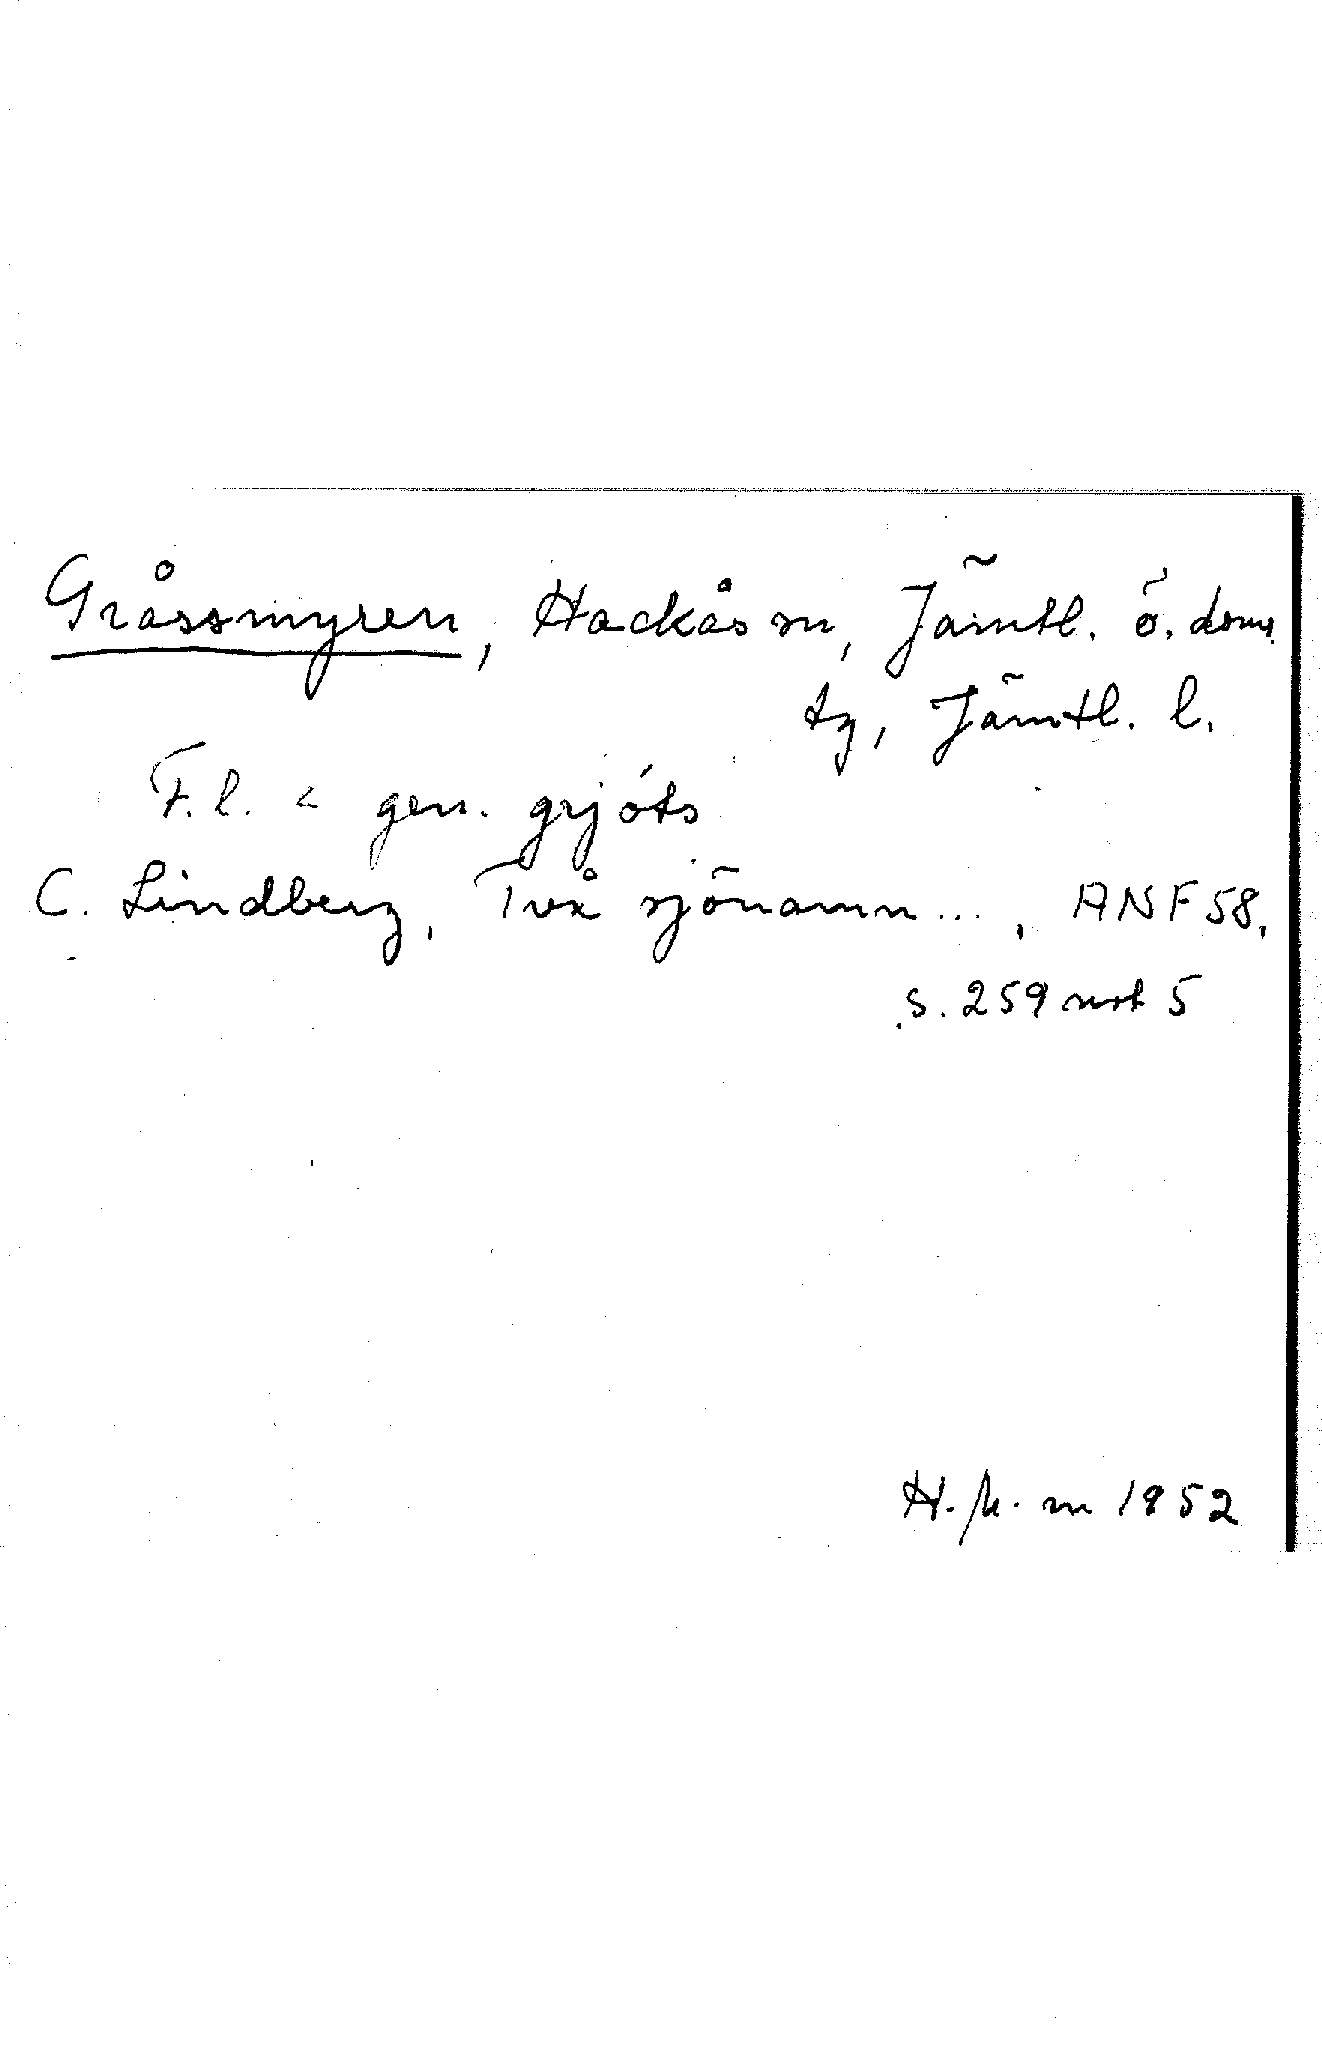 Gråssmyren, Hackås sn, Jämtl. ö. doms
tg, Jämtl. l.
F.l. < gen. grjóts
C. Lindberg, Två sjönamn ..., ANF 58,
s. 259 not 5
H. m 1952